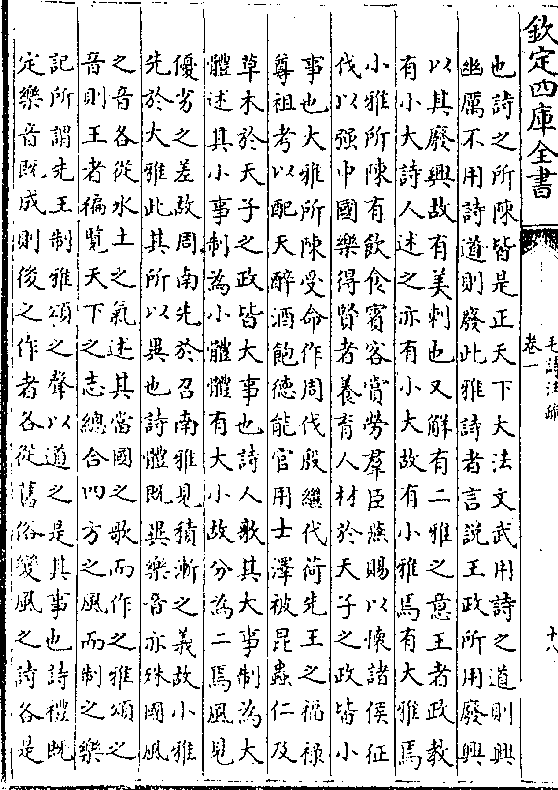 欽定四庫全書
毛詩注疏
卷一
十八
也詩之所陳皆是正天下大法文武用詩之道則興
幽厲不用詩道則廢此雅詩者言說王政所用廢興
以其廢興故有美刺也又解有二雅之意王者政教
有小大詩人述之亦有小大故有小雅焉有大雅焉
小雅所陳有飲食賓客賞勞羣臣燕賜以懷諸侯征
伐以强中國樂得賢者養育人材於天子之政皆小
事也大雅所陳受命作周代殷繼代荷先王之福祿
尊祖考以配天醉酒飽德能官用士澤被昆蟲仁及
草木於天子之政皆大事也詩人歌其大事制為大
體述其小事制為小體體有大小故分為二焉風見
優劣之差故周南先於召南雅見積漸之義故小雅
先於大雅此其所以異也詩體既異樂音亦殊國風
之音各從水土之氣述其當國之歌而作之雅頌之
音則王者徧覽天下之志總合四方之風而制之樂
記所謂先王制雅頌之聲以道之是其事也詩禮既
定樂音既成則後之作者各從舊俗變風之詩各是